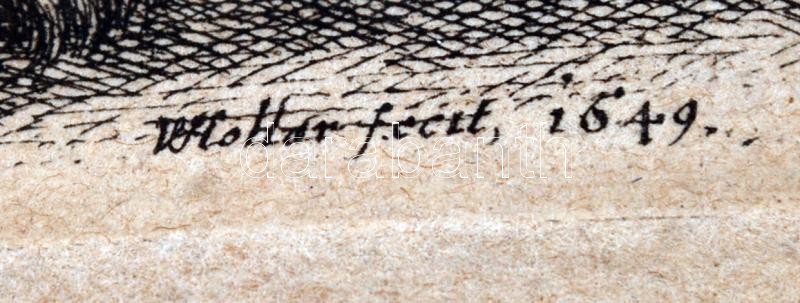 WHollar fecit, 1649.
darabanth